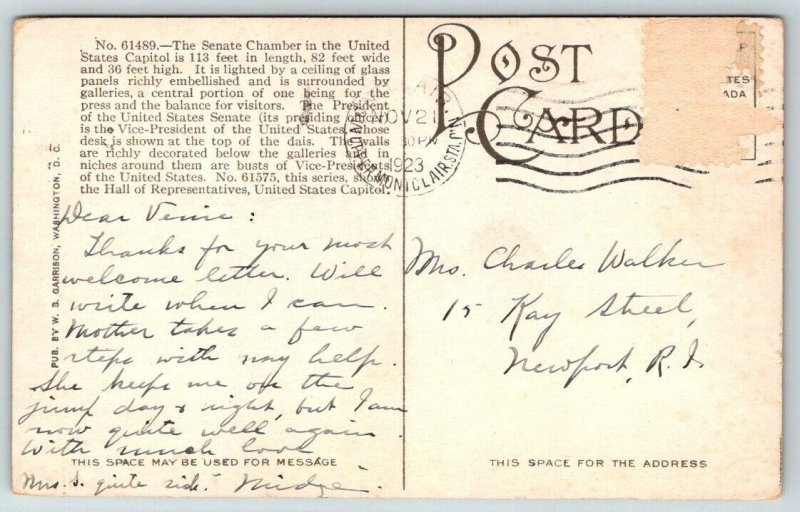 No. 61489.—The Senate Chamber in the United
States Capitol is 113 feet in length, 82 feet wide
and 36 feet high. It is lighted by a ceiling of glass
panels richly embellished and is surrounded by
galleries, a central portion of one being for the
press and the balance for visitors. The President
of the United States Senate (its presiding officer)
is the Vice-President of the United States, whose
desk is shown at the top of the dais. The walls
are richly decorated below the galleries and in
niches around them are busts of Vice-Presidents
of the United States. No. 61575, this series, shows
the Hall of Representatives, United States Capitol.
PUB. BY W. B. GARRISON, WASHINGTON, D. C.
POST CARD
NOV 21
30 PM
1923
UPPER MONTCLAIR STA.
TES
ADA
Dear Venie:
Thanks for your most
welcome letter. Will
write when I can.
Mother takes a few
steps with my help.
She keeps me on the
jump day & night, but I am
now quite well again.
With much love
Midge.
Mrs. S. quite sick.
THIS SPACE MAY BE USED FOR MESSAGE
Mrs. Charles Walker
15 Kay Street,
Newport, R.I.
THIS SPACE FOR THE ADDRESS